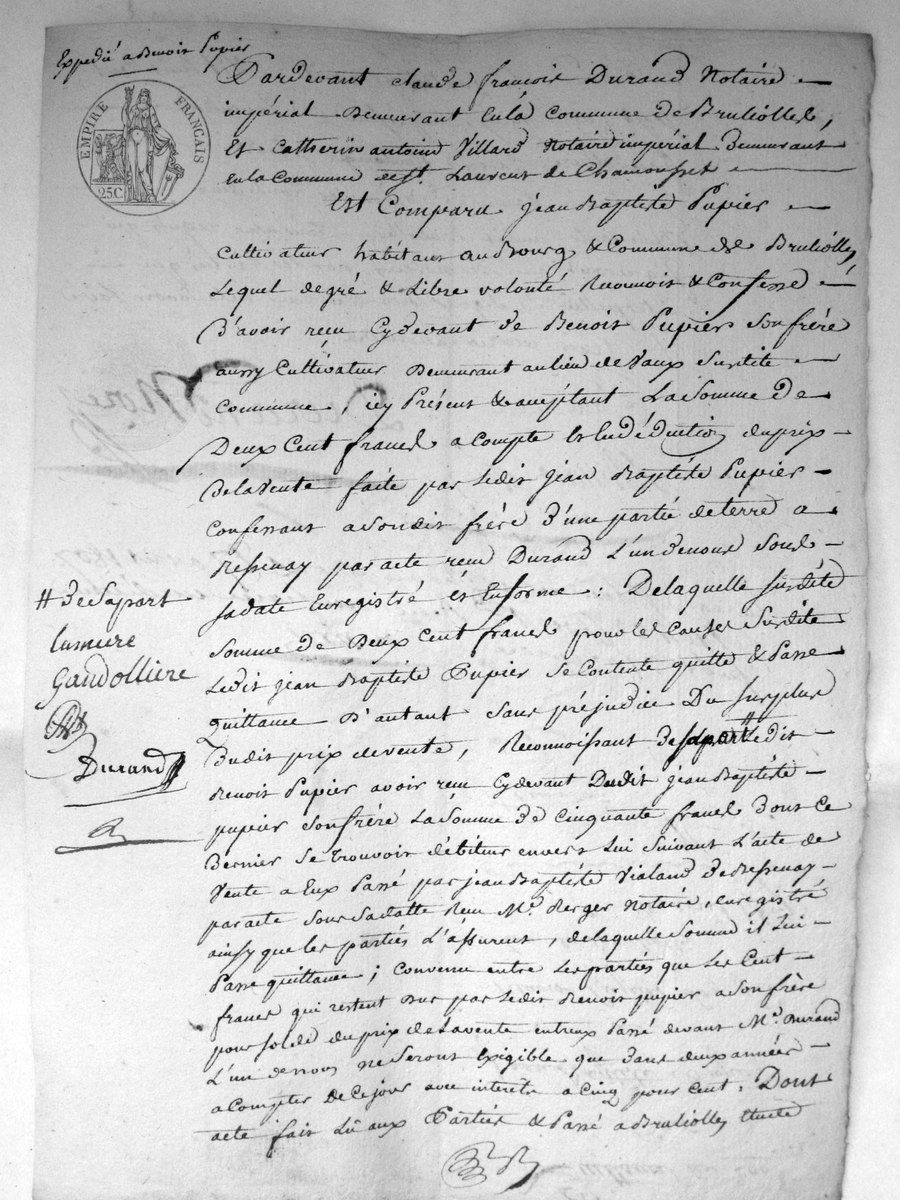 Expedié a Benoit Pupier
EMPIRE FRANÇAIS
25.C.
Pardevant claude françois Durand Notaire
impérial Demeurant En la Commune de Bruliolles,
Et Catherin antoine Villard Notaire impérial Demeurant
En la Commune de st. Laurent de Chamousset
Est Comparu jean Baptiste Pupier
Cultivateur habitant au Bourg & Commune de Bruliolles,
Lequel de gré & Libre volonté Reconnoit & Confesse
D'avoir reçu Cydevant de Benoit Pupier son frère
aussy Cultivateur Demeurant au lieu de Vaux susdite
Commune, icy Présent & aceptant La Somme de
Deux Cent francs a compte & En déduction du prix
De la Vente faite par ledit jean Baptiste Pupier
Confessant a Son dit frère D'une partie de terre a
Ressenay par acte reçu Durand L'un de nous Sous
sa date Enregistré & En forme : De laquelle Susdite
Somme de Deux Cent francs pour les Causes Susdites
Ledit jean Baptiste Pupier Se Contente quitte & Passe
quittance D'autant Sans préjudice Du Surplus
Dudit prix de vente, Reconnoissant De sa part # Ledit
Benoit Pupier avoir reçu Cydevant Dudit jean Baptiste
pupier Son frère La Somme De Cinquante francs Dont Ce
Dernier Se trouvoit débiteur envers Lui Suivant L'acte de
Vente a Eux Passé par jean Baptiste Vialand De Ressenay
par acte Sous Sa datte Reçu Me. Berger Notaire, enregistré
ainsy que les parties L'assurent, de laquelle Somme il Lui
Passe quittance ; Convenu entre Les parties que Les Cent
francs qui restent Dus par Ledit Benoit pupier a Son frère
pour Solde du prix de la vente entreux Passé devant Me. Durand
L'un de nous ne Seront Exigible que Dans deux années
a Compter de Ce jour avec interets a Cinq pour Cent. Dont
acte fait Lû aux Parties & Passé a Brulliolles Etude
# De Sa part
lumiere
Gaudolliere
Durand